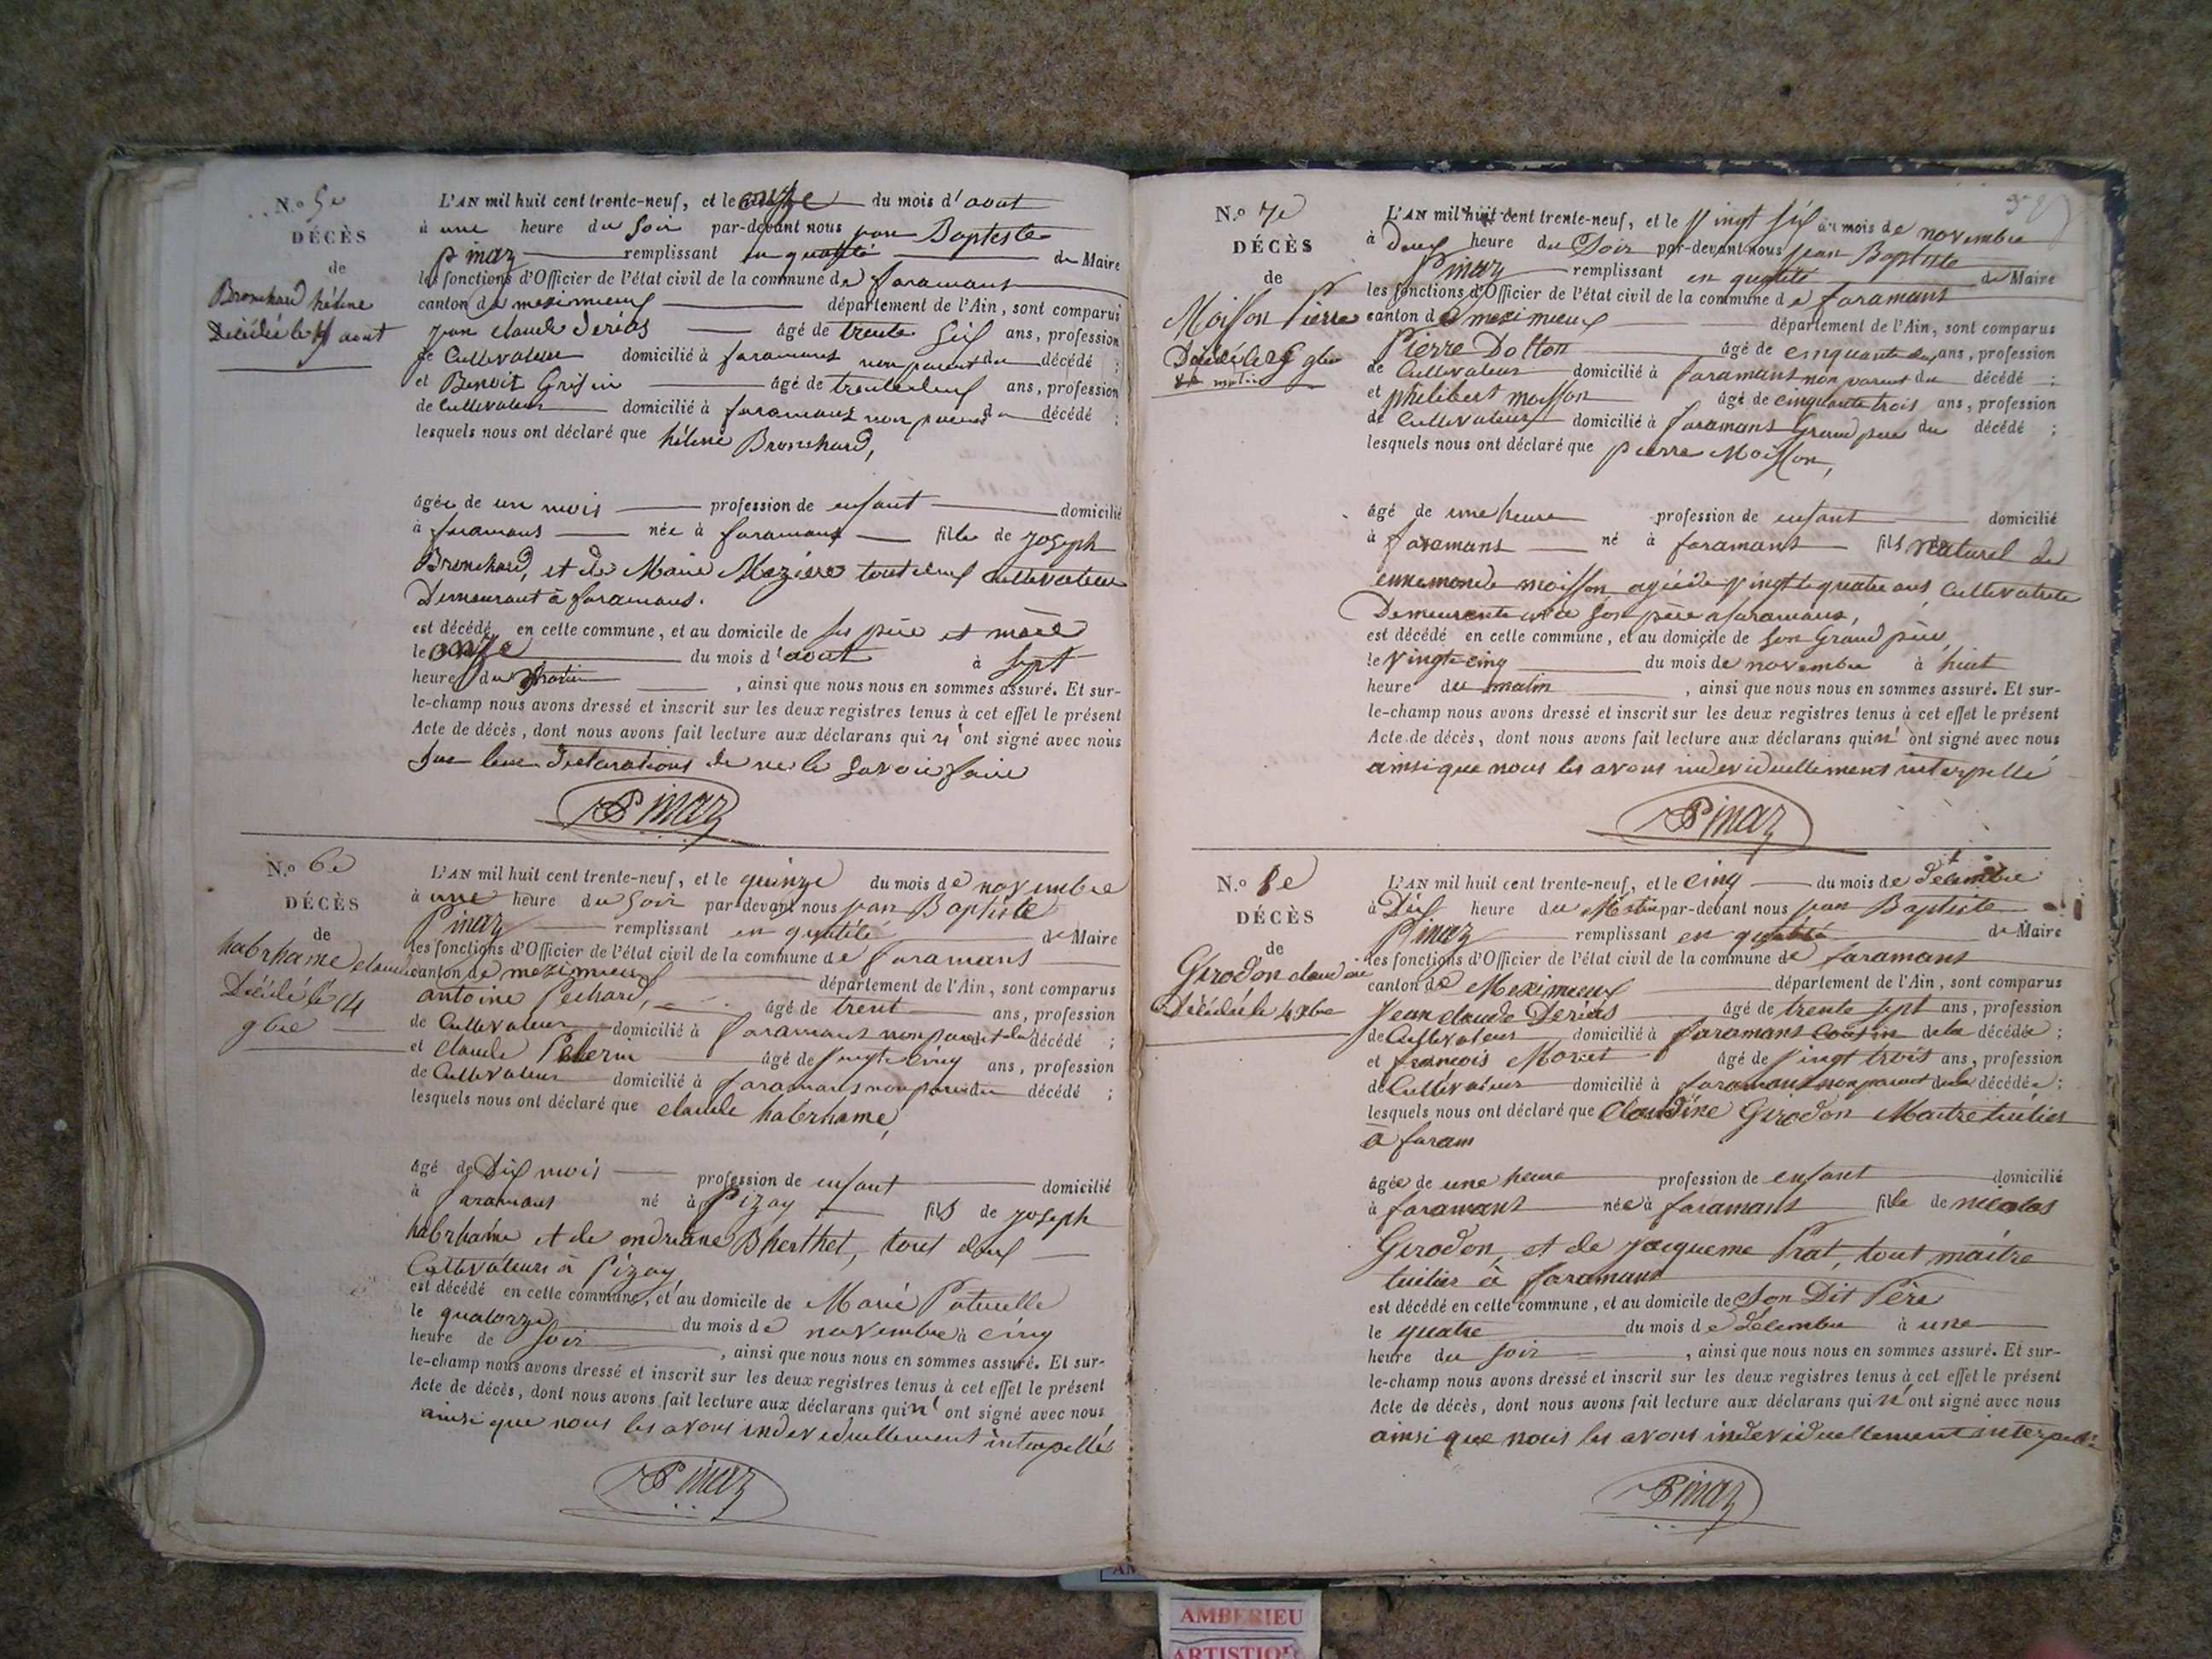 N.o 5e
DÉCÈS
de
Bronchard hélène
Décédé le 11 aout
L'AN mil huit cent trente-neuf, et le onze du mois d'aout
à une heure du Soir par-devant nous jean Baptiste
Pinaz remplissant en qualité de Maire
les fonctions d'Officier de l'état civil de la commune de faramans
canton de meximieux département de l'Ain, sont comparus
jean claude Derias âgé de trente Six ans, profession
de Cultivateur domicilié à faramans non parent du décédé ;
et Benoit âgé de trente deux ans, profession
de Cultivateur domicilié à faramans non parent du décédé ;
lesquels nous ont déclaré que hélène Bronchard,
âgée de un mois profession de enfant domicilié
à faramans née à faramans fille de joseph
Bronchard, et de Marie Mezière tout deux Cultivateur
Demeurant à faramans.
est décédé en cette commune, et au domicile de ses père et mère
le onze du mois d'aout à sept
heure du matin , ainsi que nous nous en sommes assuré. Et sur-
le-champ nous avons dressé et inscrit sur les deux registres tenus à cet effet le présent
Acte de décès, dont nous avons fait lecture aux déclarans qui n'ont signé avec nous
sur leur declarations de ne le Savoir faire
Pinaz
N.o 6e
DÉCÈS
de
habrhame claude
Décédé le 14
9bre
L'AN mil huit cent trente-neuf, et le quinze du mois de novembre
à une heure du Soir par-devant nous jean Baptiste
Pinaz remplissant en qualité de Maire
les fonctions d'Officier de l'état civil de la commune de faramans
canton de meximieux département de l'Ain, sont comparus
antoine Pechard, âgé de trent ans, profession
de Cultivateur domicilié à faramans non parent du décédé ;
et claude Pelerin âgé de vingt cinq ans, profession
de Cultivateur domicilié à faramans non parent du décédé ;
lesquels nous ont déclaré que claude habrhame,
âgé de Dix mois profession de enfant domicilié
à faramans né à Pizay fils de joseph
habrhame et de andriane Bherthet, tout deux
Cultivateurs à Pizay
est décédé en cette commune, et au domicile de Marie Patuelle
le quatorze du mois de novembre à cinq
heure de soir , ainsi que nous nous en sommes assuré. Et sur-
le-champ nous avons dressé et inscrit sur les deux registres tenus à cet effet le présent
Acte de décès, dont nous avons fait lecture aux déclarans qui n'ont signé avec nous
ainsi que nous les avons indeviduellement interpellé
Pinaz
N.o 7e
DÉCÈS
de
Moisson Pierre
Décédé le 9bre
matin
L'AN mil huit cent trente-neuf, et le vingt six du mois de novembre
à deux heure du Soir par-devant nous jean Baptiste
Pinaz remplissant en qualité de Maire
les fonctions d'Officier de l'état civil de la commune de faramans
canton de meximieux département de l'Ain, sont comparus
Pierre Dolton âgé de cinquante ans, profession
de Cultivateur domicilié à faramans non parent du décédé ;
et philibert moisson âgé de cinquante trois ans, profession
de Cultivateur domicilié à faramans Grand pere du décédé ;
lesquels nous ont déclaré que pierre Moisson,
âgé de une heure profession de enfant domicilié
à faramans né à faramans fils naturel de
ennemonde moisson agée de vingt quatre ans Cultivatrice
Demeurente de son père a faramans,
est décédé en cette commune, et au domicile de son Grand père,
le vingt cinq du mois de novembre à huit
heure du matin , ainsi que nous nous en sommes assuré. Et sur-
le-champ nous avons dressé et inscrit sur les deux registres tenus à cet effet le présent
Acte de décès, dont nous avons fait lecture aux déclarans qui n'ont signé avec nous
ainsi que nous les avons indeviduellement interpellé
Pinaz
N.o 8e
DÉCÈS
de
Girodon claudine
Décédé le 4 xbre
L'AN mil huit cent trente-neuf, et le cinq du mois de décembre
à Dix heure du Matin par-devant nous jean Baptiste
Pinaz remplissant en qualité de Maire
les fonctions d'Officier de l'état civil de la commune de faramans
canton de Meximieux département de l'Ain, sont comparus
Jean claude Derias âgé de trente sept ans, profession
de Cultivateur domicilié à faramans Cousin de la décédée ;
et françois Moret âgé de vingt trois ans, profession
de Cultivateur domicilié à faramans non parent de la décédée ;
lesquels nous ont déclaré que Claudine Girodon Maitre tuilier
à faram
âgée de une heure profession de enfant domicilié
à faramans née à faramans fille de nicolas
Girodon, et de jacqueme Prat, tout maitre
tuilier à faramans
est décédé en cette commune, et au domicile de Son Dit Père
le quatre du mois de décembre à une
heure du soir , ainsi que nous nous en sommes assuré. Et sur-
le-champ nous avons dressé et inscrit sur les deux registres tenus à cet effet le présent
Acte de décès, dont nous avons fait lecture aux déclarans qui n'ont signé avec nous
ainsi que nous les avons indeviduellement interpellé
Pinaz
AMBERIEU